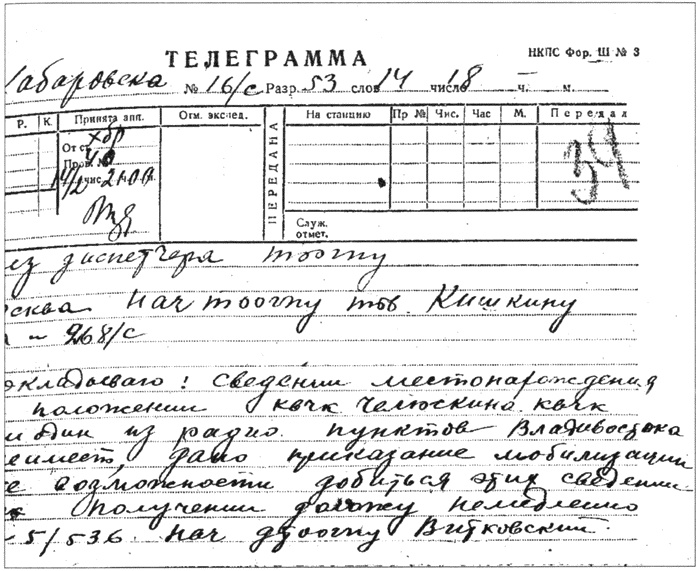 ТЕЛЕГРАММА
НКПС Фор. Ш № 3
Хабаровска № 16/с Разр. 53 слов 14 число 18 ч. м.
Р. К. Принята апп. Отм. экспед. ПЕРЕДАНА На станцию Пр № Чис. Час М. Передал
От ст. Хбр
Пров. №
14/2 чис. 2100
39
Служ.
отмет.
ез диспетчера тоогпу
сква нач тоогпу тов. Кишкину
268/с
окладываю: сведении местонарождения
положении квчк Челюскина квчк
и один из радио пунктов Владивостока
е имеет, дано приказание мобилизации
е возможности добиться этих сведении.
получении доложу немедленно
5/536 нач дтоогпу Витковский.